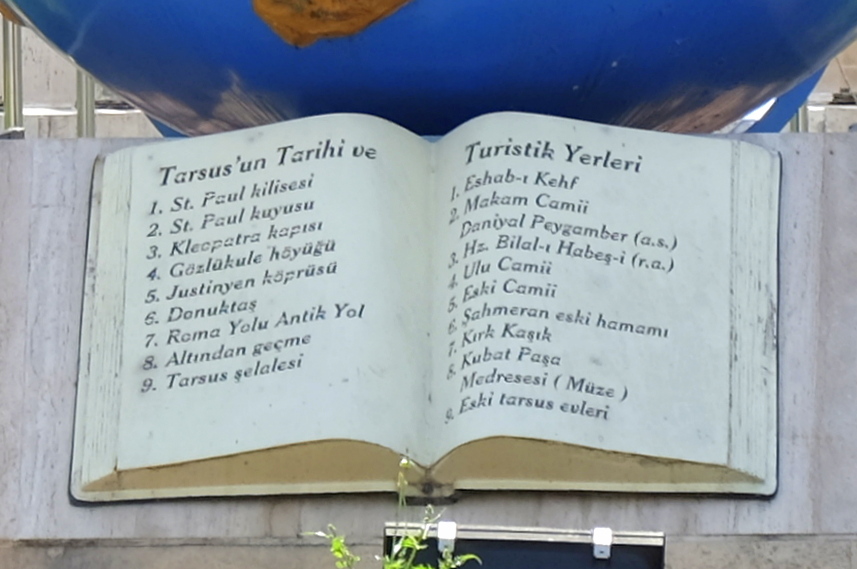 Tarsus'un Tarihi ve
1. St. Paul kilisesi
2. St. Paul kuyusu
3. Kleopatra kapısı
4. Gözlükule höyüğü
5. Justinyen köprüsü
6. Donuktaş
7. Roma Yolu Antik Yol
8. Altından geçme
9. Tarsus şelalesi
Turistik Yerleri
1. Eshab-ı Kehf
2. Makam Camii
Daniyal Peygamber (a.s.)
3. Hz. Bilal-ı Habeş-i (r.a.)
4. Ulu Camii
5. Eski Camii
6. Şahmeran eski hamamı
7. Kırk Kaşık
8. Kubat Paşa
Medresesi ( Müze )
9. Eski tarsus evleri